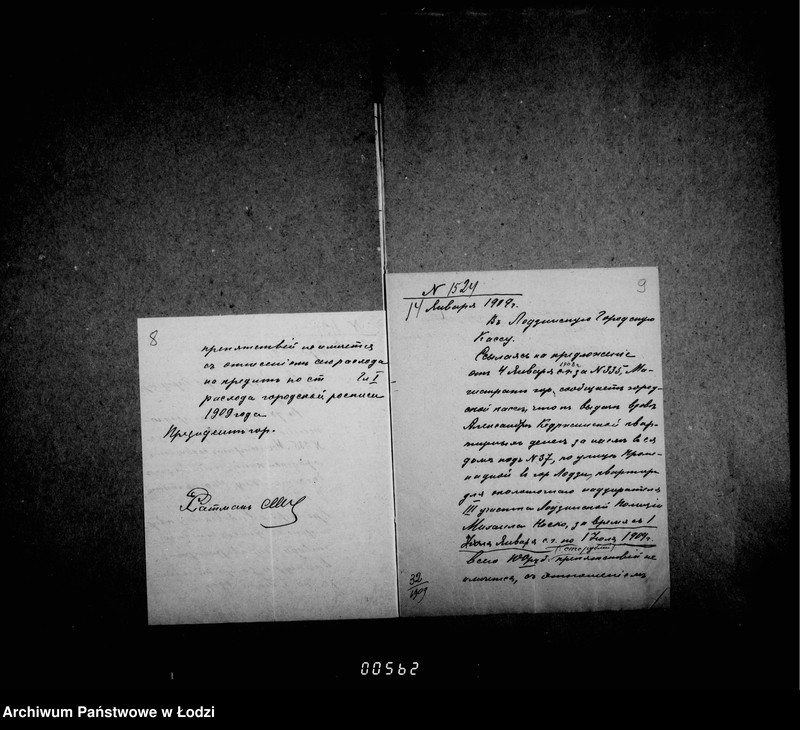 8
препятствій не имѣется
съ отнесеніемъ сего расхода
на кредитъ по ст 7 л I
расхода городской росписи
1909 года
Президентъ гор.
Ратманъ
9
N 1524
14 Января 1909 г.
Въ Лодзинскую Городскую
Кассу.
Ссылаясь на предложеніе
отъ 4 Января за N 335, Ма-
гистратъ гор. сообщаетъ город-
ской кассѣ, что къ выдачѣ вдовѣ
Александрѣ квар-
тирныхъ денегъ за наемъ въ ея
домѣ подъ N 37, по улицѣ
въ гор. Лодзи, квартиры
для околоточнаго надзирателя
III участка Лодзинской Полиціи
Михаила Носко, за время съ 1
Января с.г. по 1 Іюля 1909 г.
(сто рубл)
всего 100 руб. препятствій не
имѣется, съ отнесеніемъ
32
1909
00562
Archiwum Państwowe w Łodzi